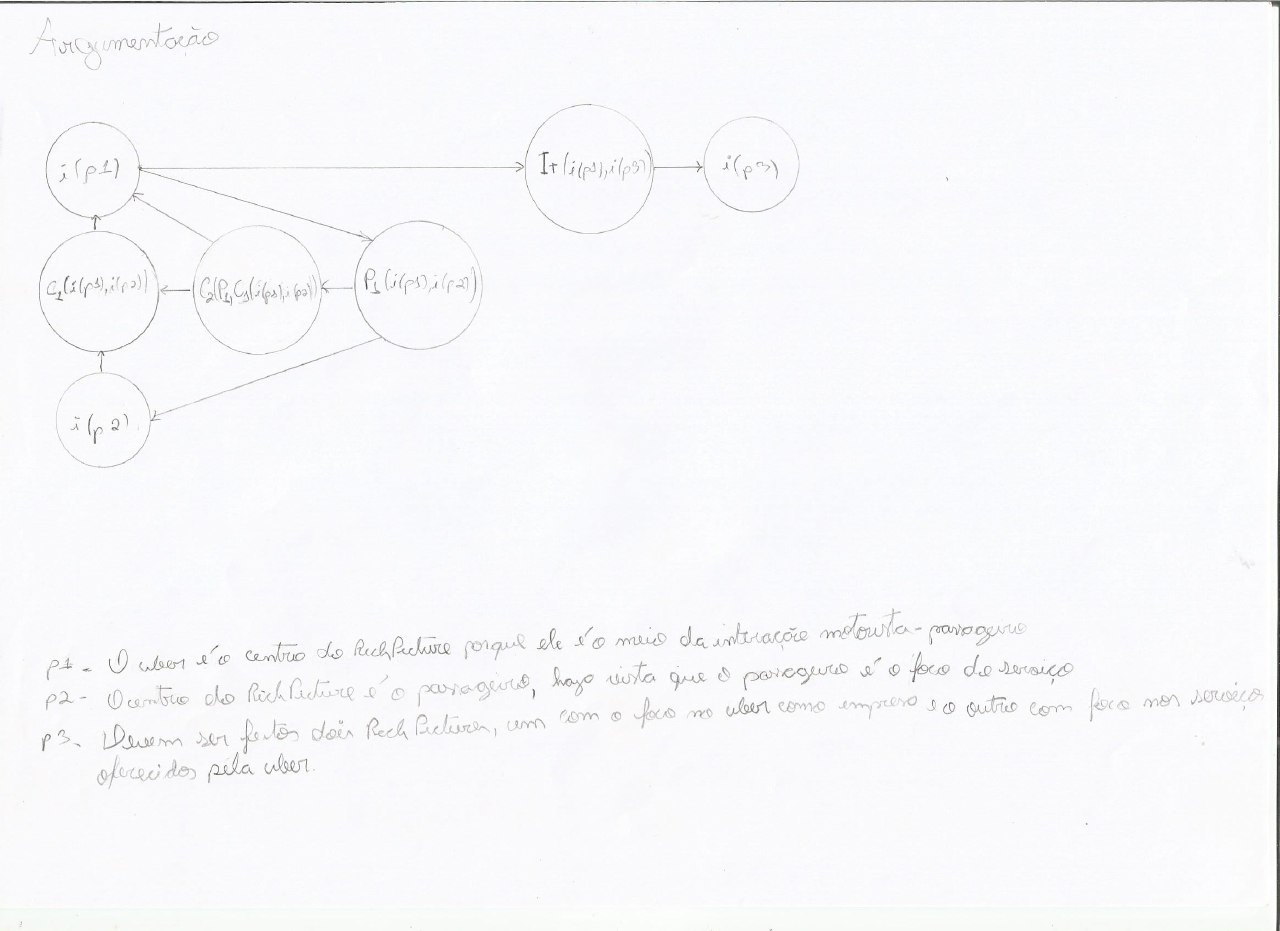 Argumentação
i(p1)
I+(i(p1),i(p3))
i(p3)
C1(i(p1),i(p2))
C2(P1,C1(i(p1),i(p2))
P1(i(p1),i(p2))
i(p2)
p1- O uber é o centro do RichPicture porque ele é o meio da interação motorista-passageiro
p2- O centro do RichPicture é o passageiro, haja vista que o passageiro é o foco do serviço
p3- Devem ser feitos dois RichPictures, um com o foco no uber como empresa e o outro com foco nos serviços
oferecidos pela uber.